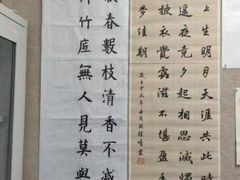 上生明月天涯共此時
遙夜竟夕起相思滅燭
披衣覺露滋不堪盈手
夢佳期
春數枝清香不減
竹
無人見莫與